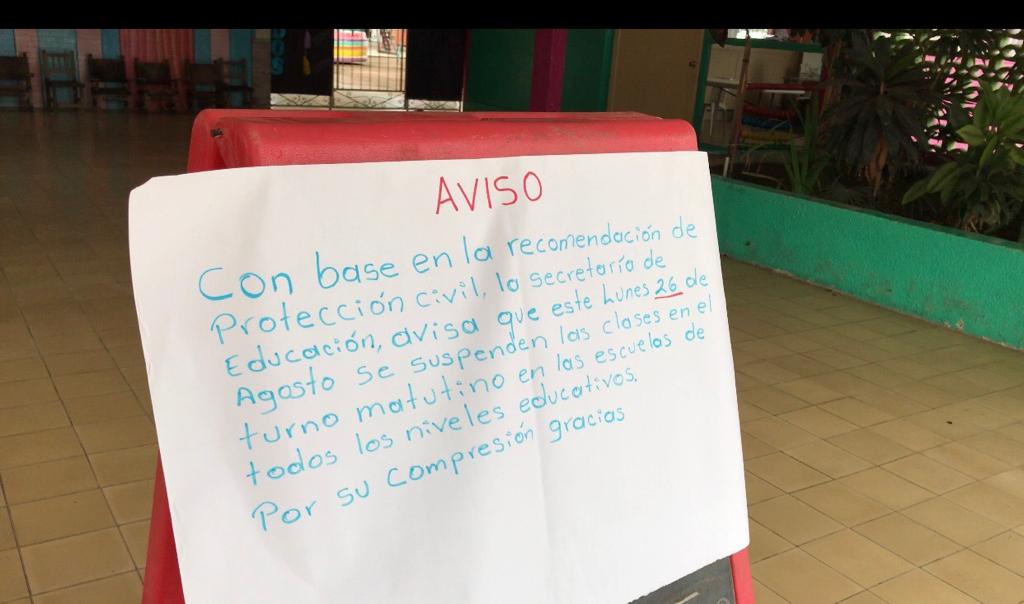 AVISO
Con base en la recomendación de
Protección civil, la secretaría de
Educación, avisa que este Lunes 26 de
Agosto se suspenden las clases en el
turno matutino en las escuelas de
todos los niveles educativos.
Por su compresión gracias